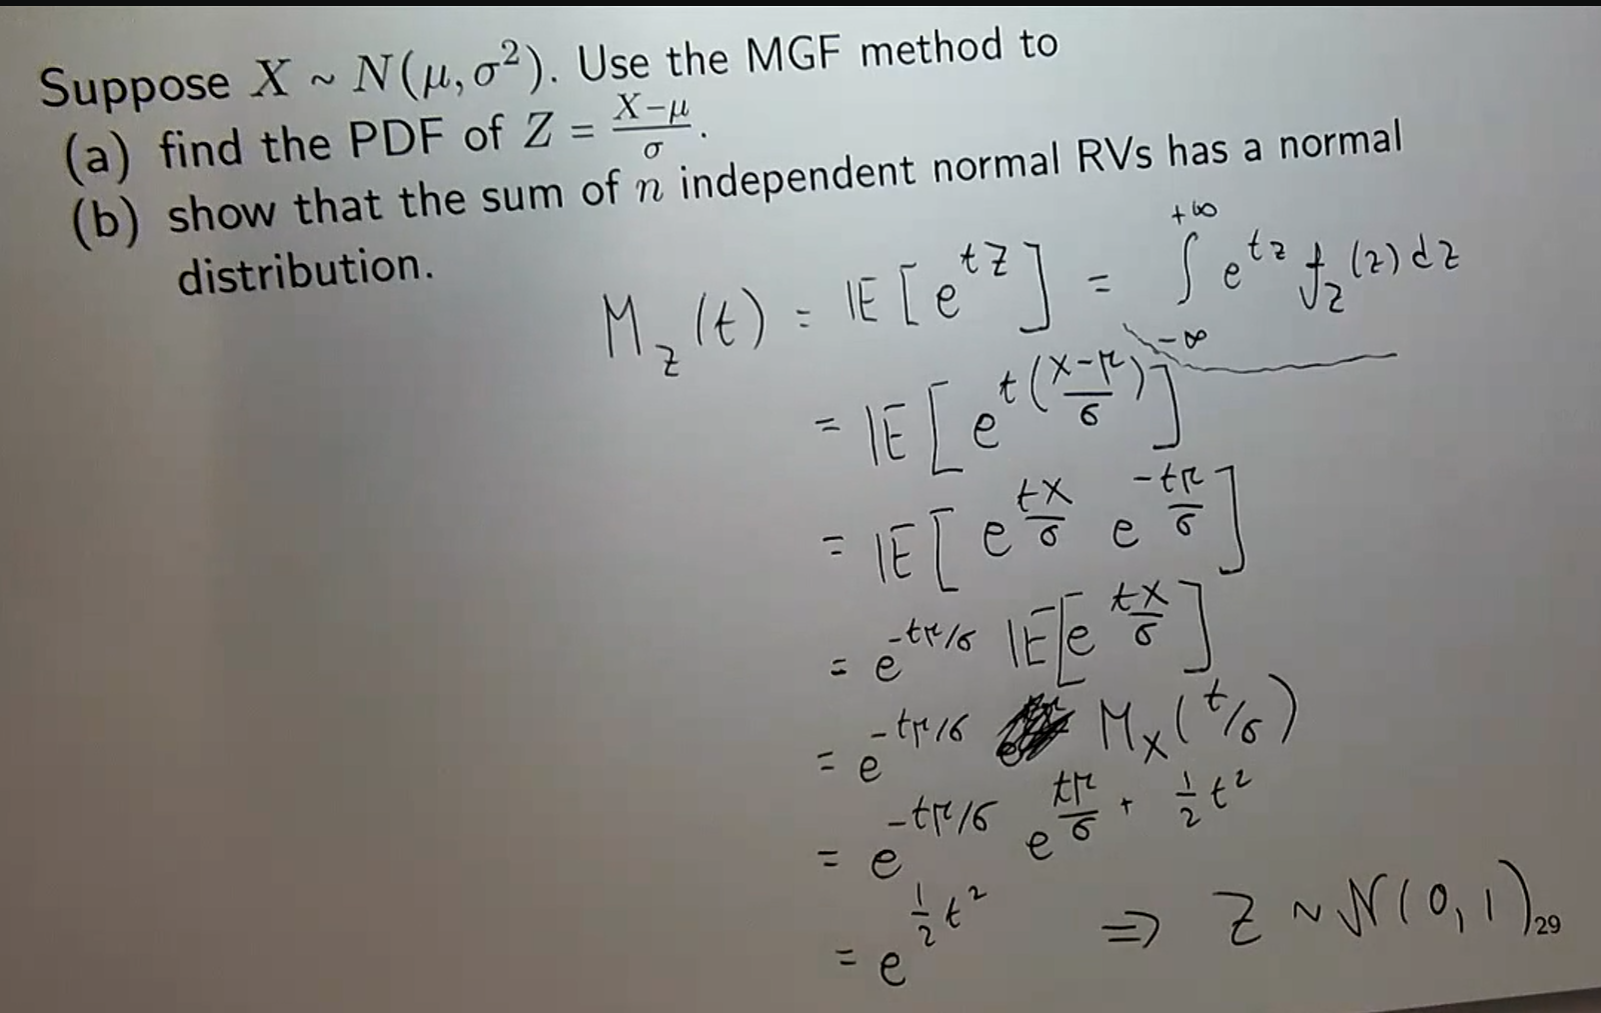 Suppose X ~ N(μ, σ²). Use the MGF method to
(a) find the PDF of Z = (X−μ)/σ.
(b) show that the sum of n independent normal RVs has a normal
distribution.
M_Z(t) = IE[e^{tZ}] = ∫_{-∞}^{+∞} e^{tz} f_Z(z) dz
= IE[e^{t((X-μ)/σ)}]
= IE[e^{tX/σ} e^{-tμ/σ}]
= e^{-tμ/σ} IE[e^{tX/σ}]
= e^{-tμ/σ} M_X(t/σ)
= e^{-tμ/σ} e^{tμ/σ + ½t²}
= e^{½t²} ⇒ Z ~ N(0,1)
29